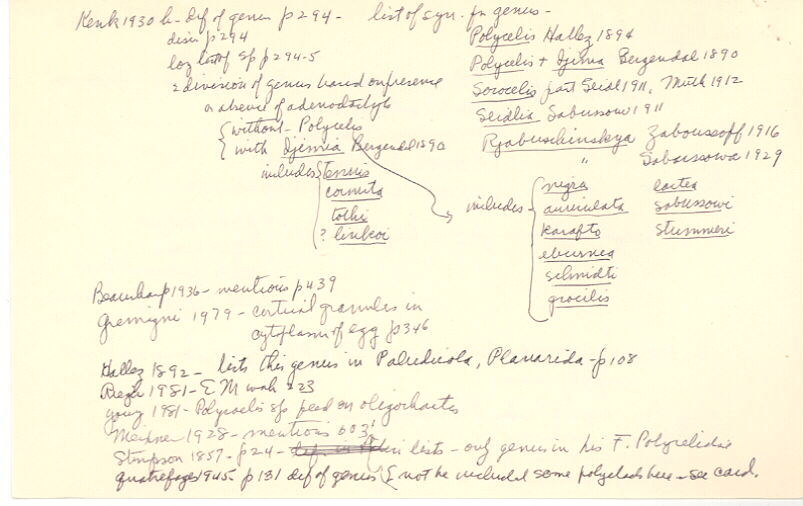 Kenk 1930 b - def of genus p 294 - list of syn. for genus -
disc p 294
long list of sp p 294-5
2 division of genus based on presence
or absence of adenodactyls
without - Polycelis
with Ijimia Bergendal 1890
includes tenuis
cornuta
tothi
? linkoi
Polycelis Hallez 1894
Polycelis + Ijimia Bergendal 1890
Sorocelis part Seidl 1911, Muth 1912
Seidlia Sabussow 1911
Rjabuschinskya Zaboussoff 1916
" Sabussowa 1929
includes - nigra lactea
auriculata sabussowi
karafto stummeri
eburnea
schmidti
gracilis
Beauchamp 1936 - mentions p 439
Gremigni 1979 - cortical granules in
cytoplasm of egg p 346
Hallez 1892 - lists this genus in Paludicola, Planarida - p 108
1981 - E M 223
Young 1981 - Polycelis sps feed on oligochaetes
Meixner 1928 - mentions 603
Stimpson 1857 - p 24 - lists - only genus in his F. Polycelidae
Quatrefages 1945 - p 131 def of genus & not he included some polyclads here - see card.